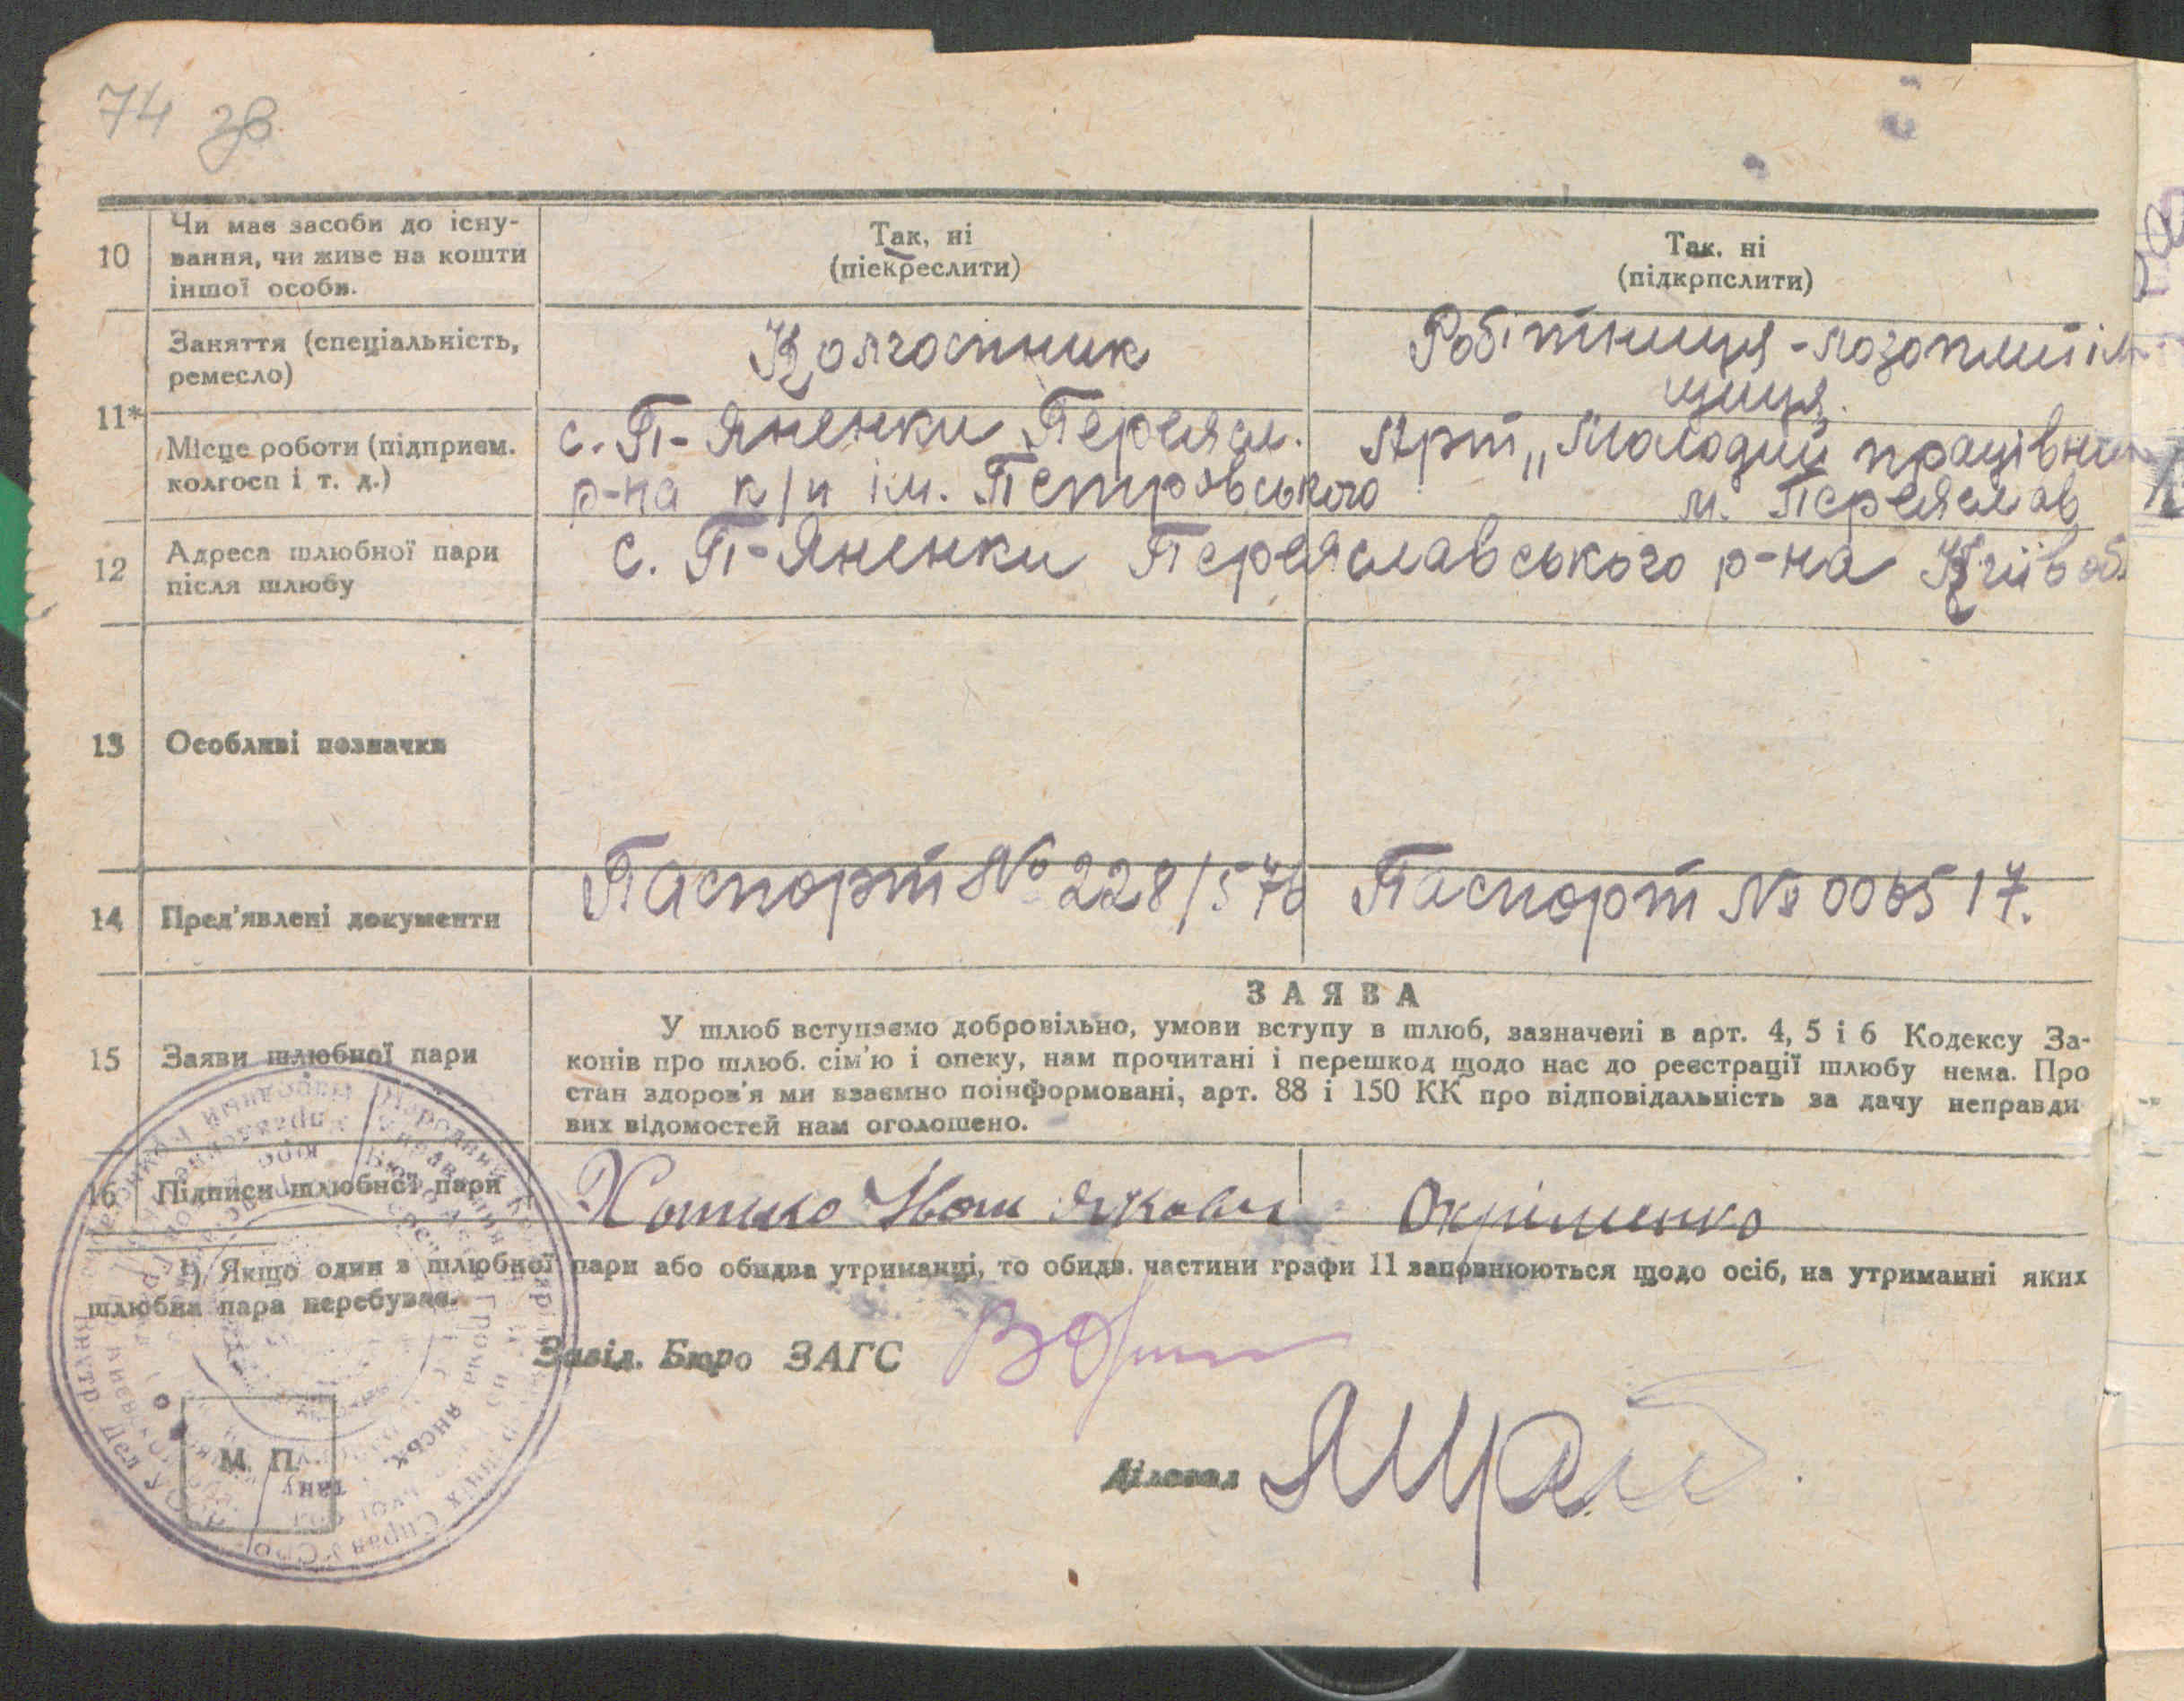 74 зв.
10 Чи має засоби до існу-
вання, чи живе на кошти
іншої особи.
Так, ні
(піекреслити)
Так. ні
(підкрпслити)
11* Заняття (спеціальність,
ремесло)
Колгоспник
Робітниця - лозоплетіль
щиця.
Місце роботи (підприєм.
колгосп і т. д.)
с. П-Яненки Переясл.
р-на к/г ім. Петровського
Арт „Молодий працівник
м. Переяслав
12 Адреса шлюбної пари
після шлюбу
с. П-Яненки Переяславського р-на Київ об.
13 Особливі позначки
14 Пред'явлені документи
Паспорт № 228/576
Паспорт № 006517.
15 Заяви шлюбної пари
ЗАЯВА
У шлюб вступаємо добровільно, умови вступу в шлюб, зазначені в арт. 4, 5 і 6 Кодексу За-
конів про шлюб. сім'ю і опеку, нам прочитані і перешкод щодо нас до реєстрації шлюбу нема. Про
стан здоров'я ми взаємно поінформовані, арт. 88 і 150 КК про відповідальність за дачу неправди
вих відомостей нам оголошено.
16 Підписи шлюбної пари
Іван Якович
Охріменко
*) Якщо один з шлюбної пари або обидва утриманці, то обидв. частини графи 11 заповнюються щодо осіб, на утриманні яких
шлюбна пара перебуває.
Завід. Бюро ЗАГС
Діловод
М. П.